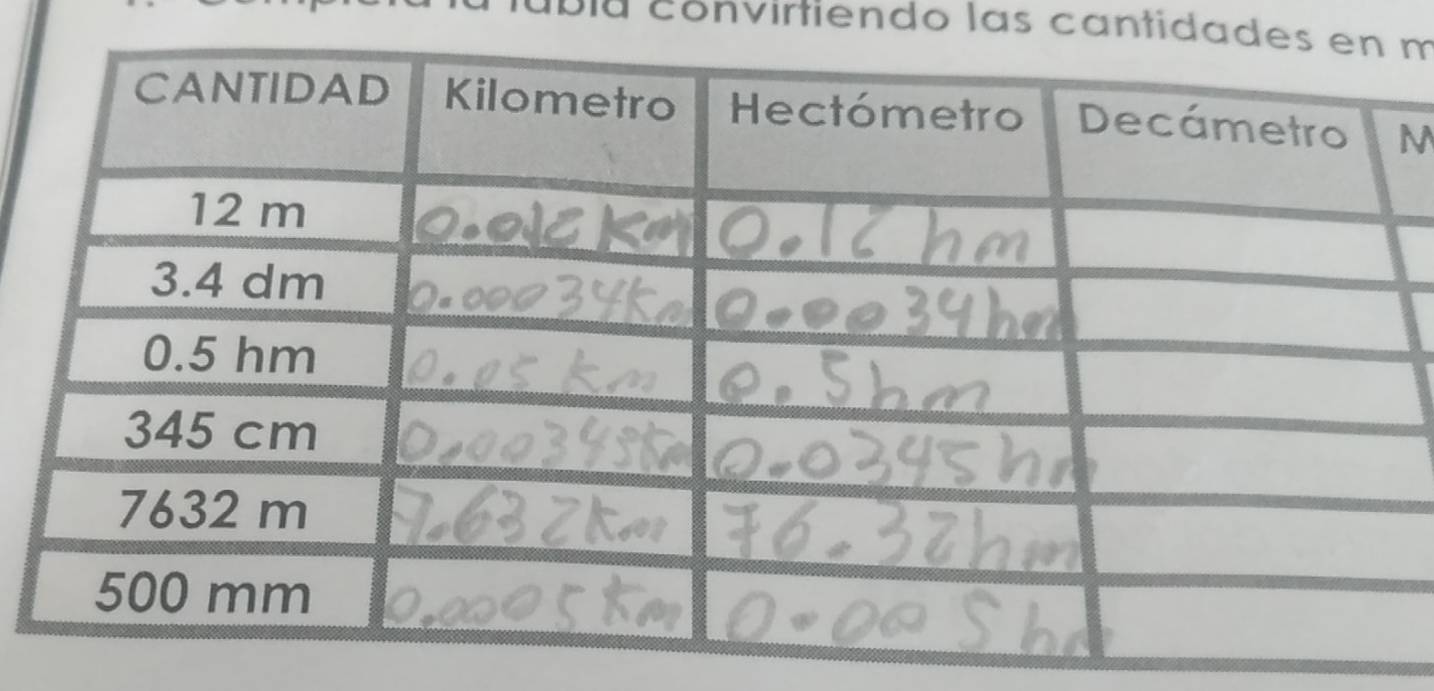 tabla convirtiendo las cantidades en m
CANTIDAD Kilometro Hectómetro Decámetro M
12 m 0.012 Km 0.12 hm
3.4 dm 0.00034Km 0.0034hm
0.5 hm 0.05 km 0.5hm
345 cm 0.00345Km 0.0345hm
7632 m 7.632Km 76.32hm
500 mm 0.0005 Km 0.005 hm